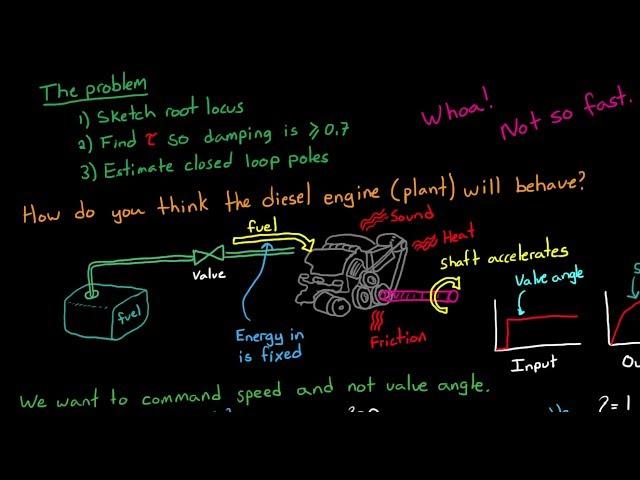 The problem
1) Sketch root locus
2) Find τ so damping is ≥ 0.7
3) Estimate closed loop poles
Whoa!
Not so fast.
How do you think the diesel engine (plant) will behave?
fuel
Sound
Heat
Valve
shaft accelerates
fuel
Energy in
is fixed
Friction
Valve angle
Input
We want to command speed and not valve angle.